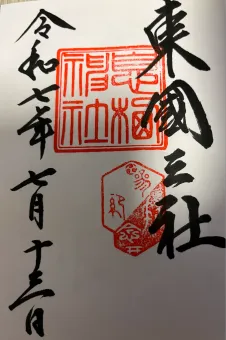 東國三社
息栖
神社
令和七年七月十三日